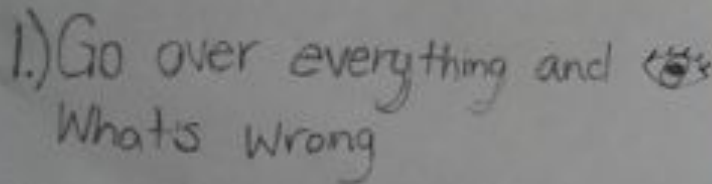 1.) Go over everything and
What's Wrong